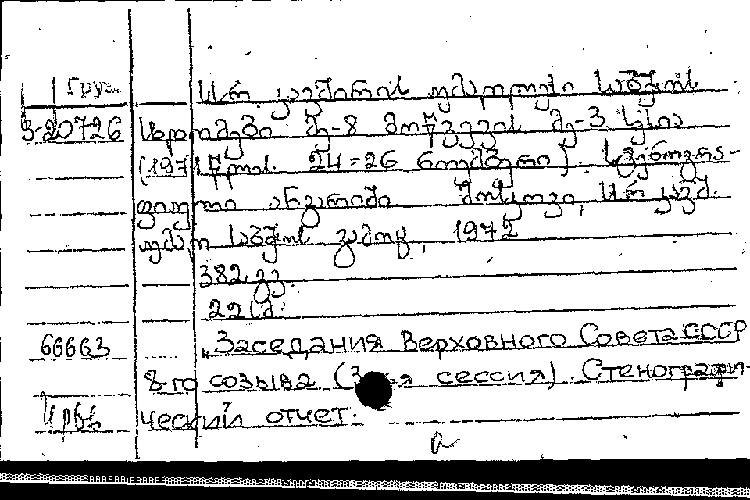 Груз. სსრ კავშირის უმაღლესი საბჭოს
3-20726 სხდომები მე-8 მოწვევის მე-3 სესია
(1971 წლის 24-26 ნოემბერი). სტენოგრა-
ფიული ანგარიში მოსკოვი, სსრ კავშ.
უმაღლ. საბჭოს გამოც., 1972
382 გვ.
22 სმ.
66663 „Заседания Верховного Совета СССР
8-го созыва (3-я сессия). Стенографи-
ческий отчет.